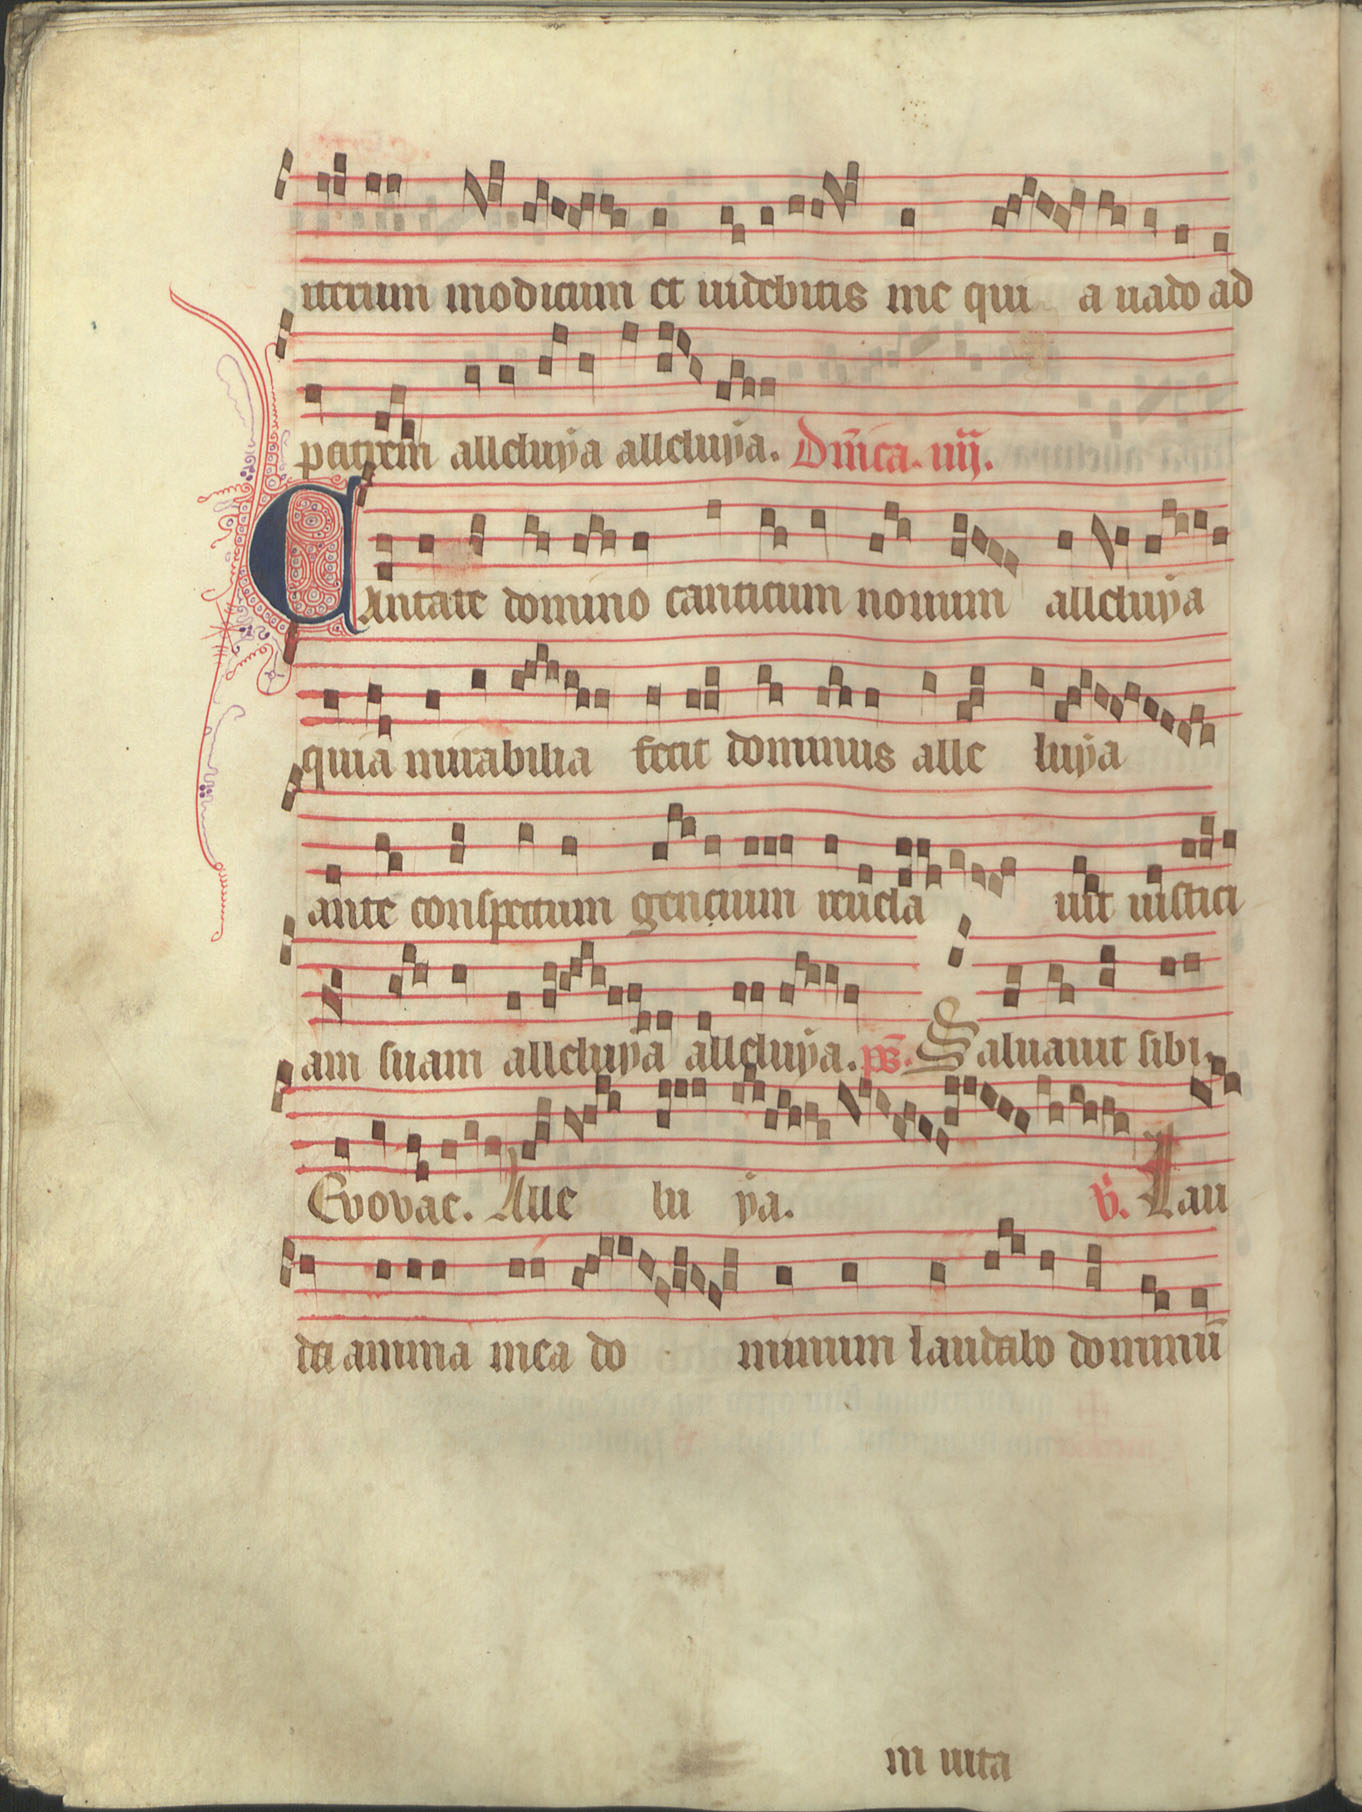 iterum modicum et uidebitis me qui a uado ad
patrem alleluya alleluya. Dn̄ica. iiij.
Cantate domino canticum nouum alleluya
quia mirabilia fecit dominus alle luya
ante conspectum gencium reuela uit iustici
am suam alleluya alleluya. ps̄. Saluauit sibi.
Evovae. Alle lu ya. v̄. Lau
da anima mea do minum laudabo dominū
in uita